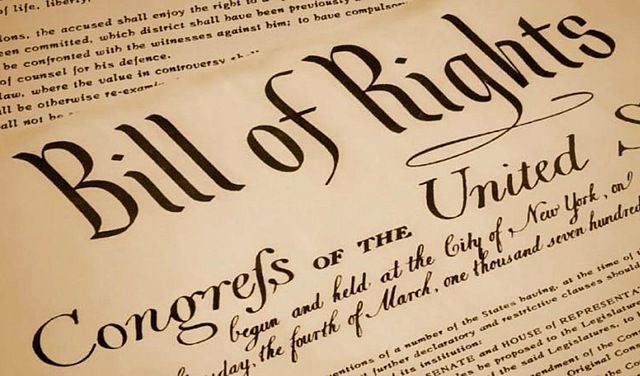 of life, liberty,
ions, the accused shall enjoy the right to a
een committed, which district shall have been previously
be confronted with the witnesses against him; to have compulsor
of counsel for his defence.
law, where the value in controversy shall
ll be otherwise re-exam
all not be
Bill of Rights
Congreſs OF THE United S
begun and held at the City of New York, on
day, the fourth of March, one thousand seven hundred
ventions of a number of the States having, at the time of
further declaratory and restrictive clauses should
its institution:
SENATE and HOUSE of REPRESENTA
be proposed to the Legislatur
the said Legislatures, to
endment of the Con
Original Const